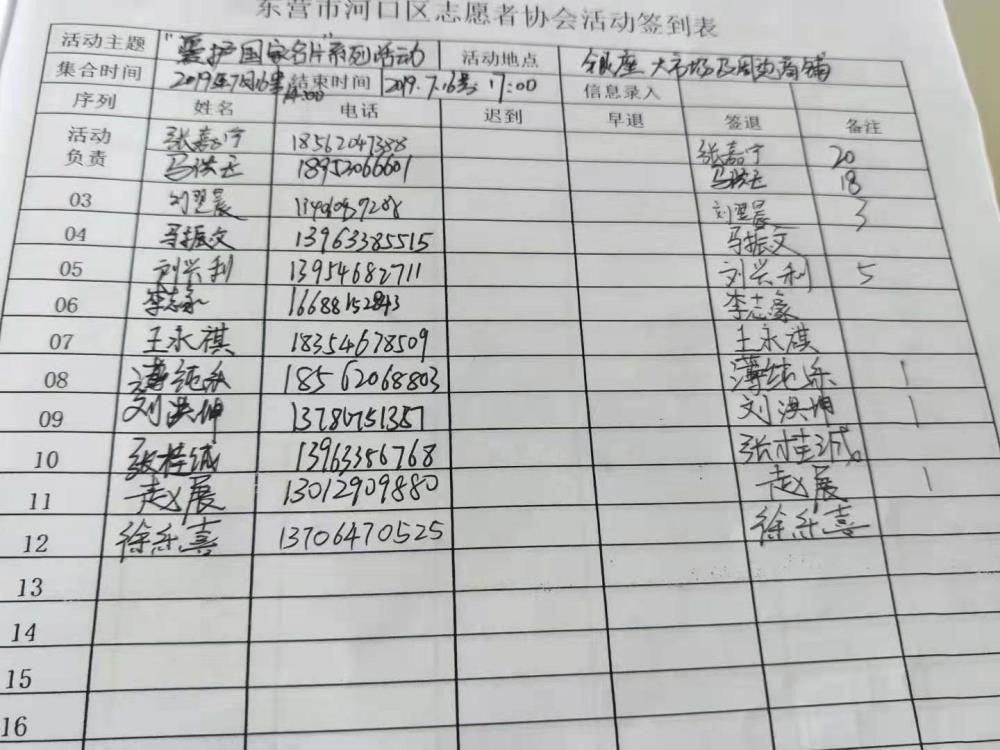 东营市河口区志愿者协会活动签到表
活动主题 "爱护国家名片"系列活动 活动地点 银座大市场及周边商铺
集合时间 2019年7月16号 14:00 结束时间 2019.7.16号 17:00 信息录入
序列 姓名 电话 迟到 早退 签退 备注
活动负责 张嘉宁 18562047388 张嘉宁 20
18952066601 18
03 刘翌晨 刘翌晨 3
04 马振文 13963385515 马振文
05 刘兴利 13954682711 刘兴利 5
06 李志豪 16688152843 李志豪
07 王永祺 18354678509 王永祺
08 薄纯乐 18562068803 薄纯乐 1
09 刘洪坤 刘洪坤 1
10 张桂诚 13963356768 张桂诚
11 赵展 13012909880 赵展 1
12 徐乐喜 13706470525 徐乐喜
13
14
15
16